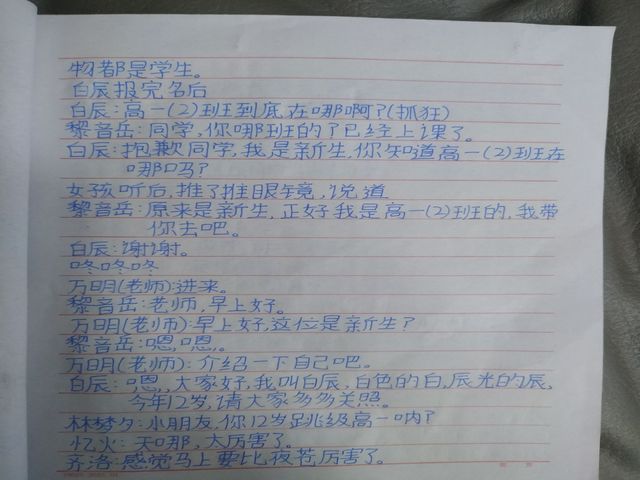 物都是学生。
白辰报完名后
白辰:高一(2)班到底在哪啊?(抓狂)
黎音岳:同学,你哪班的?已经上课了。
白辰:抱歉同学,我是新生,你知道高一(2)班在
哪吗?
女孩听后,推了推眼镜,说道
黎音岳:原来是新生,正好我是高一(2)班的,我带
你去吧。
白辰:谢谢。
咚咚咚
万明(老师):进来。
黎音岳:老师,早上好。
万明(老师):早上好,这位是新生?
黎音岳:嗯,嗯。
万明(老师):介绍一下自己吧。
白辰:嗯,大家好,我叫白辰,白色的白,辰光的辰,
今年12岁,请大家多多关照。
林梦夕:小朋友,你12岁跳级高一呐?
忆火:天哪,大厉害了。
齐洛:感觉马上要比夜苍厉害了。